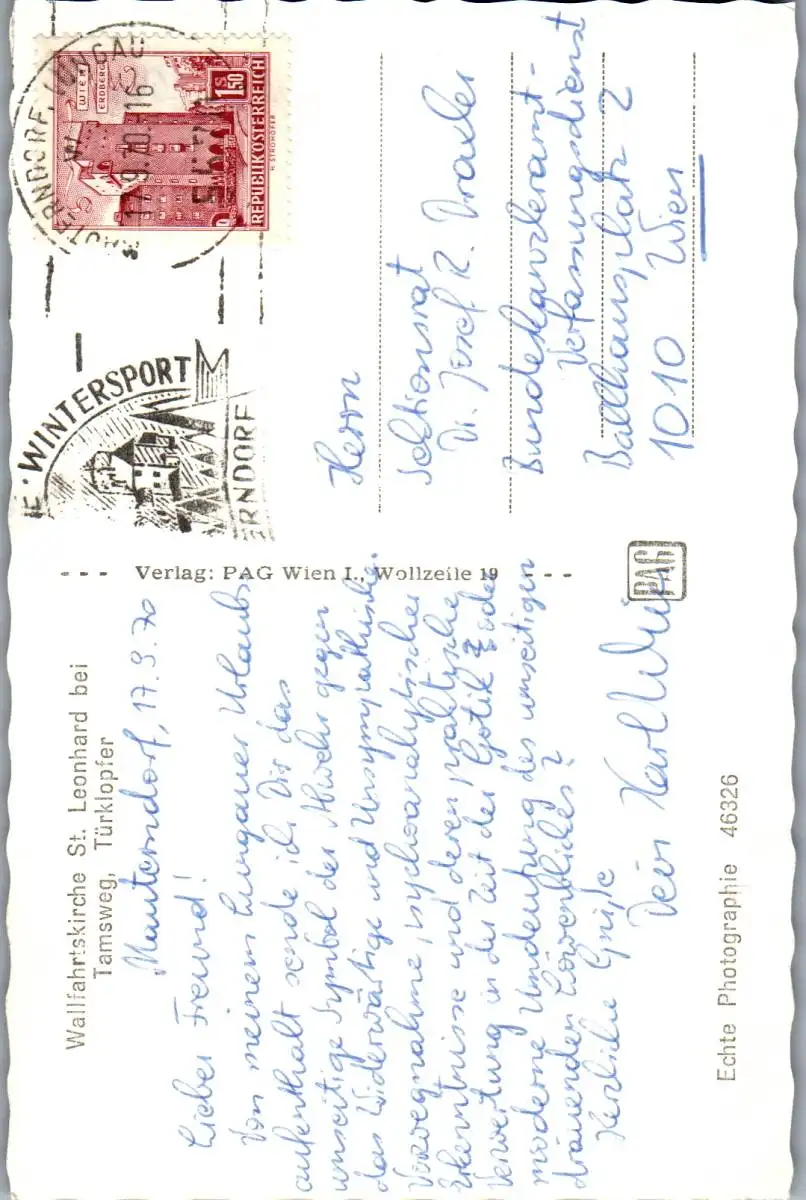 Wallfahrtskirche St. Leonhard bei
Tamsweg, Türklopfer
Mauterndorf, 17.9.70
Lieber Freund!
Von meinem Lungauer Urlaubs-
aufenthalt sende ich Dir das
umseitige Symbol der Abwehr gegen
das Widerwärtige und Unsympathische.
Vorwegnahme psychoanalytischer
Erkenntnisse und deren praktische
Verwertung in der Zeit der Gotik oder
moderne Umdeutung des umseitigen
dräuenden Löwenblickes?
Herzliche Grüße
Dein Karl
Echte Photographie 46326
Verlag: PAG Wien I., Wollzeile 19
PAG
MAUTERNDORF, LUNGAU
17.9.70.16
WIEN
ERDBERG
S 1.50
REPUBLIK ÖSTERREICH
H. STROHOFER
WINTERSPORT
ERNDORF
Herrn
Sektionsrat
Dr. Josef R. Draxler
Bundeskanzleramt-
Verfassungsdienst
Ballhausplatz 2
1010 Wien